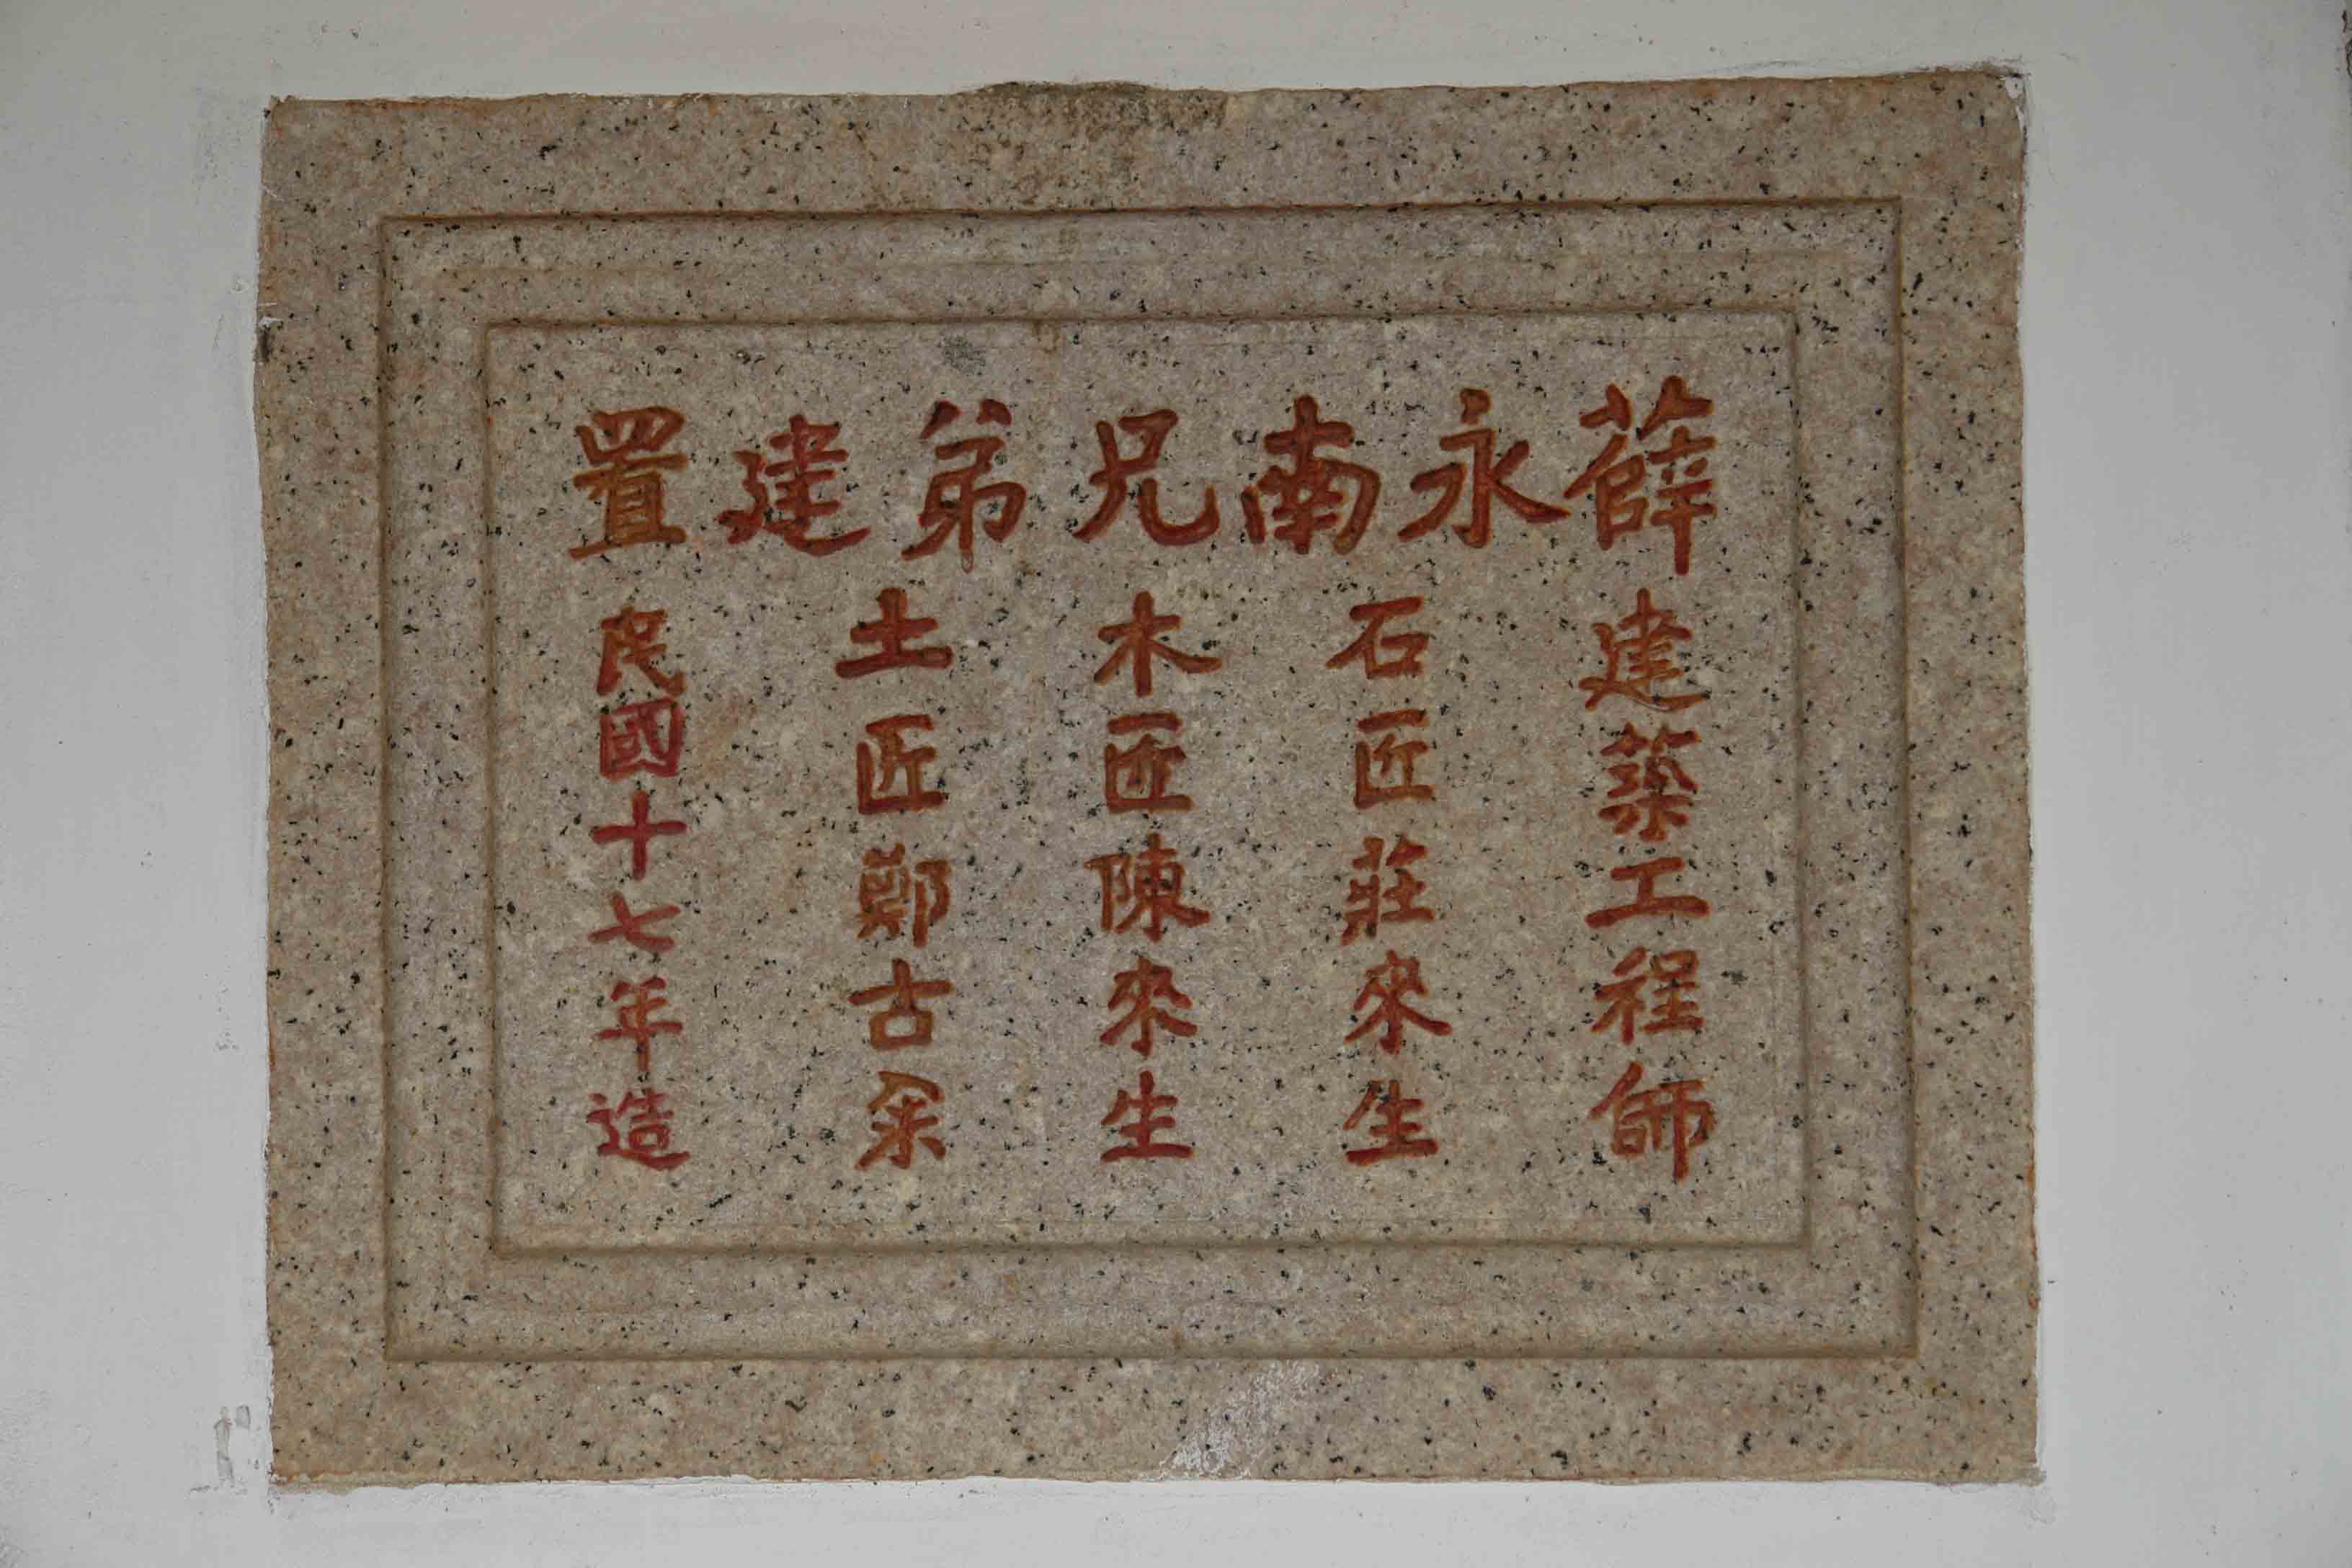 薛永南兄弟建置
建築工程師
石匠莊來生
木匠陳來生
土匠鄭古余
民國十七年造